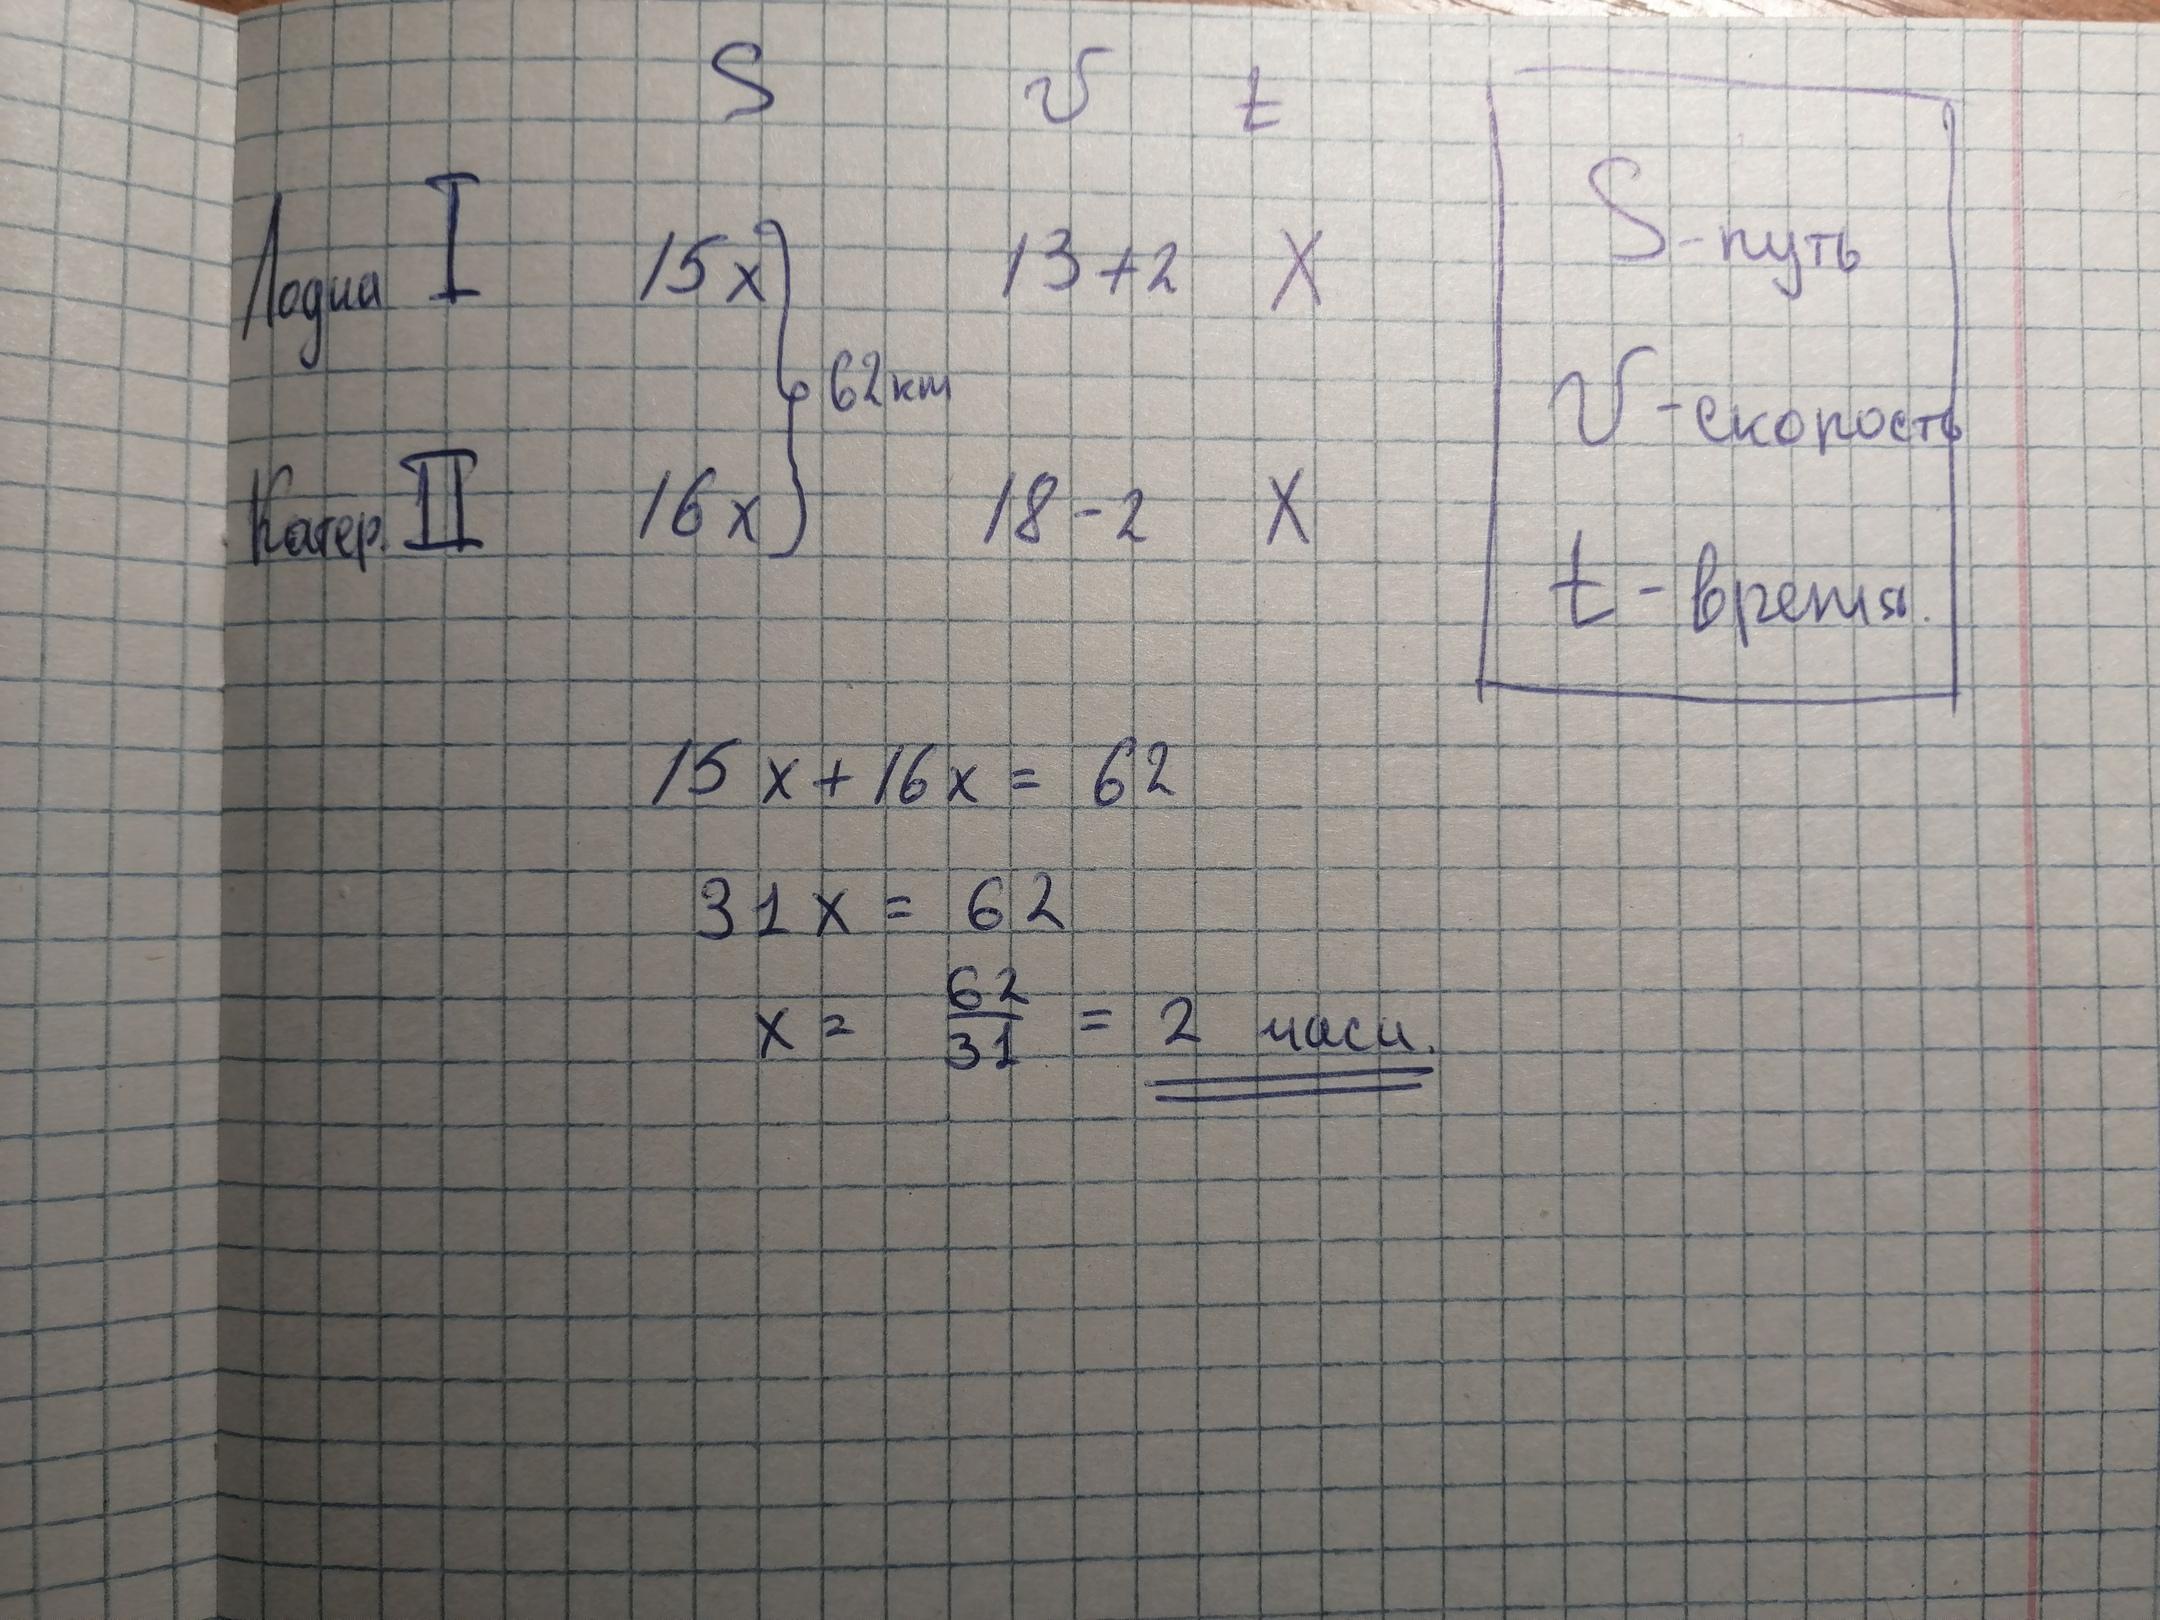 S v t
Лодка I 15x 13+2 X
62км
Катер. II 16x 18-2 X
S-путь
v-скорость
t-время.
15x+16x = 62
31x = 62
x = 62/31 = 2 часа.